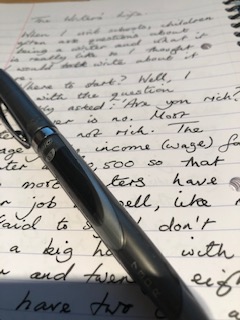 The Writer's Life.
When I visit schools, children
often ask questions about
being a writer and what it
is really like. I thought
I would talk write about it
Where to start? Well, I
with the question
asked: Are you rich?
er is no. Most
not rich. The
age income (wage) for
ter ,500 so that
mo ters have
r job well, like
raid to s don't
a big ho with
r and twen eig
have two